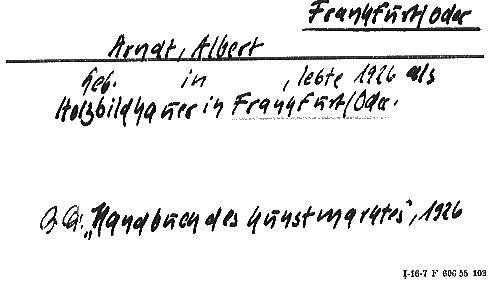 Frankfurt/Oder
Arndt, Albert
geb. in , lebte 1926 als
Holzbildhauer in Frankfurt/Oder.
„Handbuch des Kunstmarktes", 1926
I-16-7 F 606 55 103